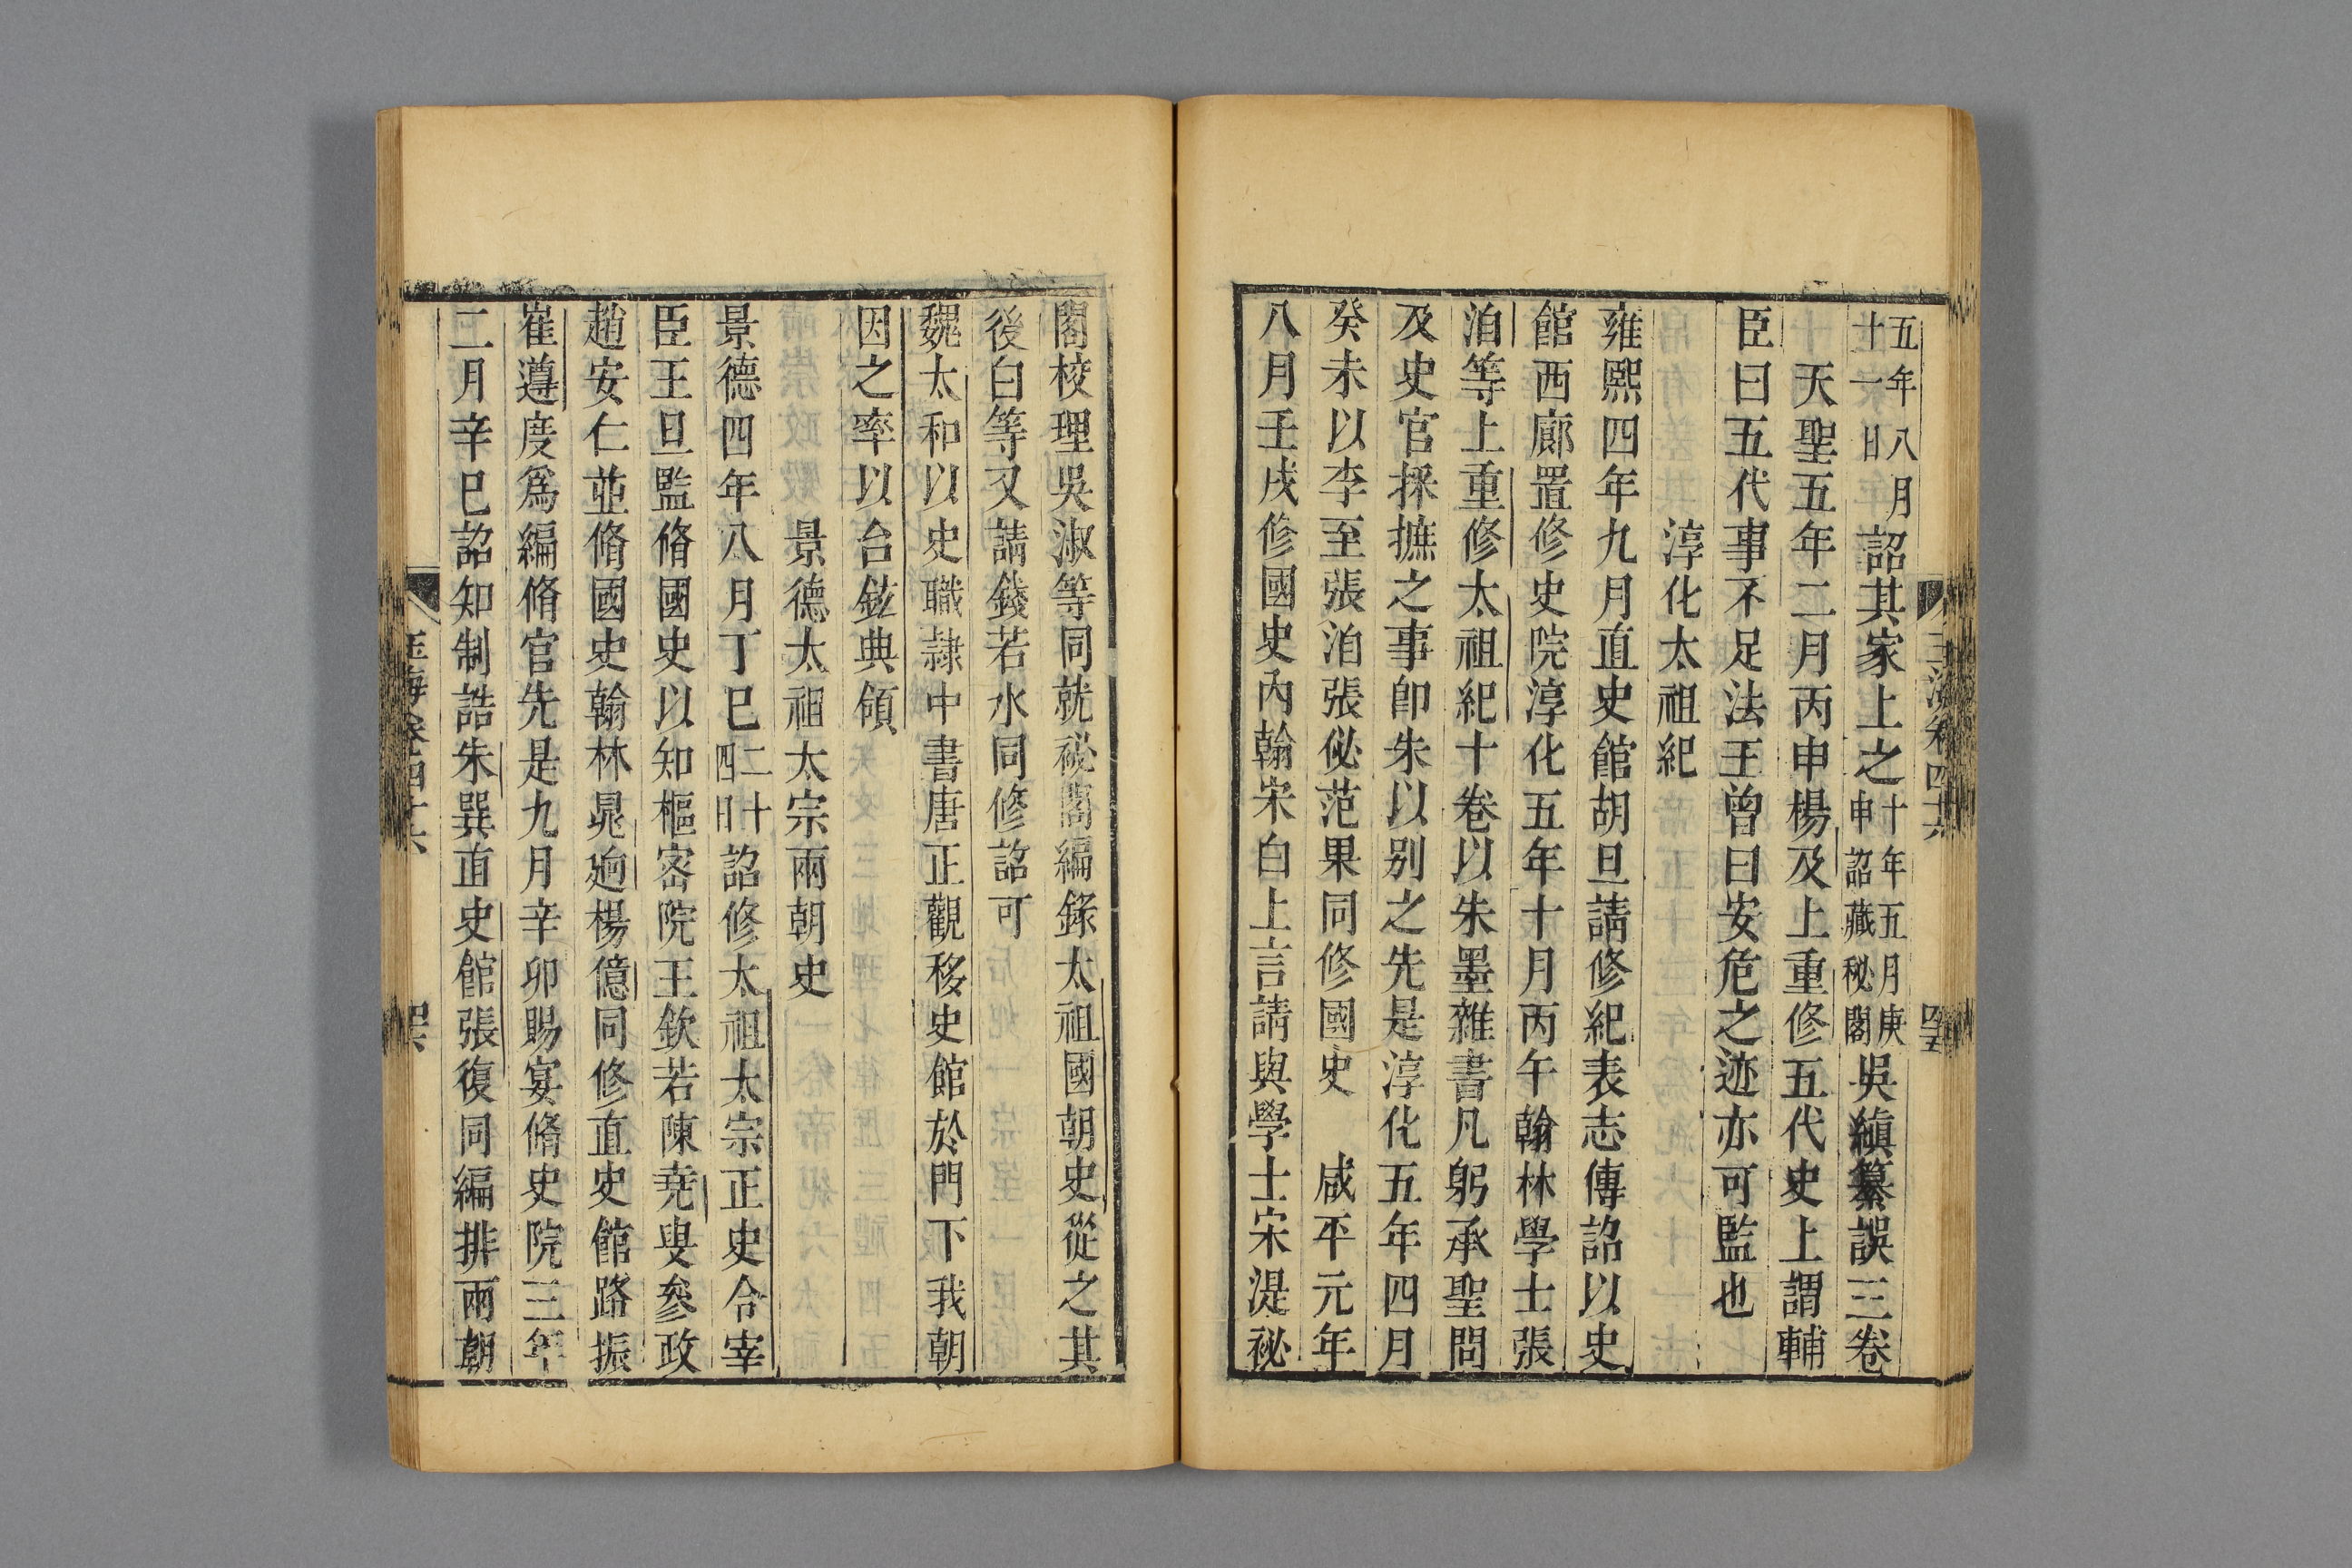 五年八月十一日詔其家上之十年五月庚申詔藏秘閣吳縝纂誤三卷
天聖五年二月丙申楊及上重修五代史上謂輔
臣曰五代事不足法王曾曰安危之迹亦可監也
淳化太祖紀
雍熙四年九月直史館胡旦請修紀表志傳詔以史
館西廊置修史院淳化五年十月丙午翰林學士張
洎等上重修太祖紀十卷以朱墨雜書凡躬承聖問
及史官採摭之事卽朱以別之先是淳化五年四月
癸未以李至張洎張佖范杲同修國史 咸平元年
八月壬戌修國史內翰宋白上言請與學士宋湜祕
閣校理吳淑等同就祕閣編錄太祖國朝史從之其
後白等又請錢若水同修詔可
魏太和以史職隷中書唐正觀移史館於門下我朝
因之率以台鉉典領
景德太祖太宗兩朝史
景德四年八月丁巳二十四日詔修太祖太宗正史合宰
臣王旦監脩國史以知樞密院王欽若陳堯叟參政
趙安仁並脩國史翰林晁逈楊億同修直史館路振
崔遵度爲編脩官先是九月辛卯賜宴脩史院三年
二月辛巳詔知制誥朱巽直史館張復同編排兩朝
玉海卷四十六